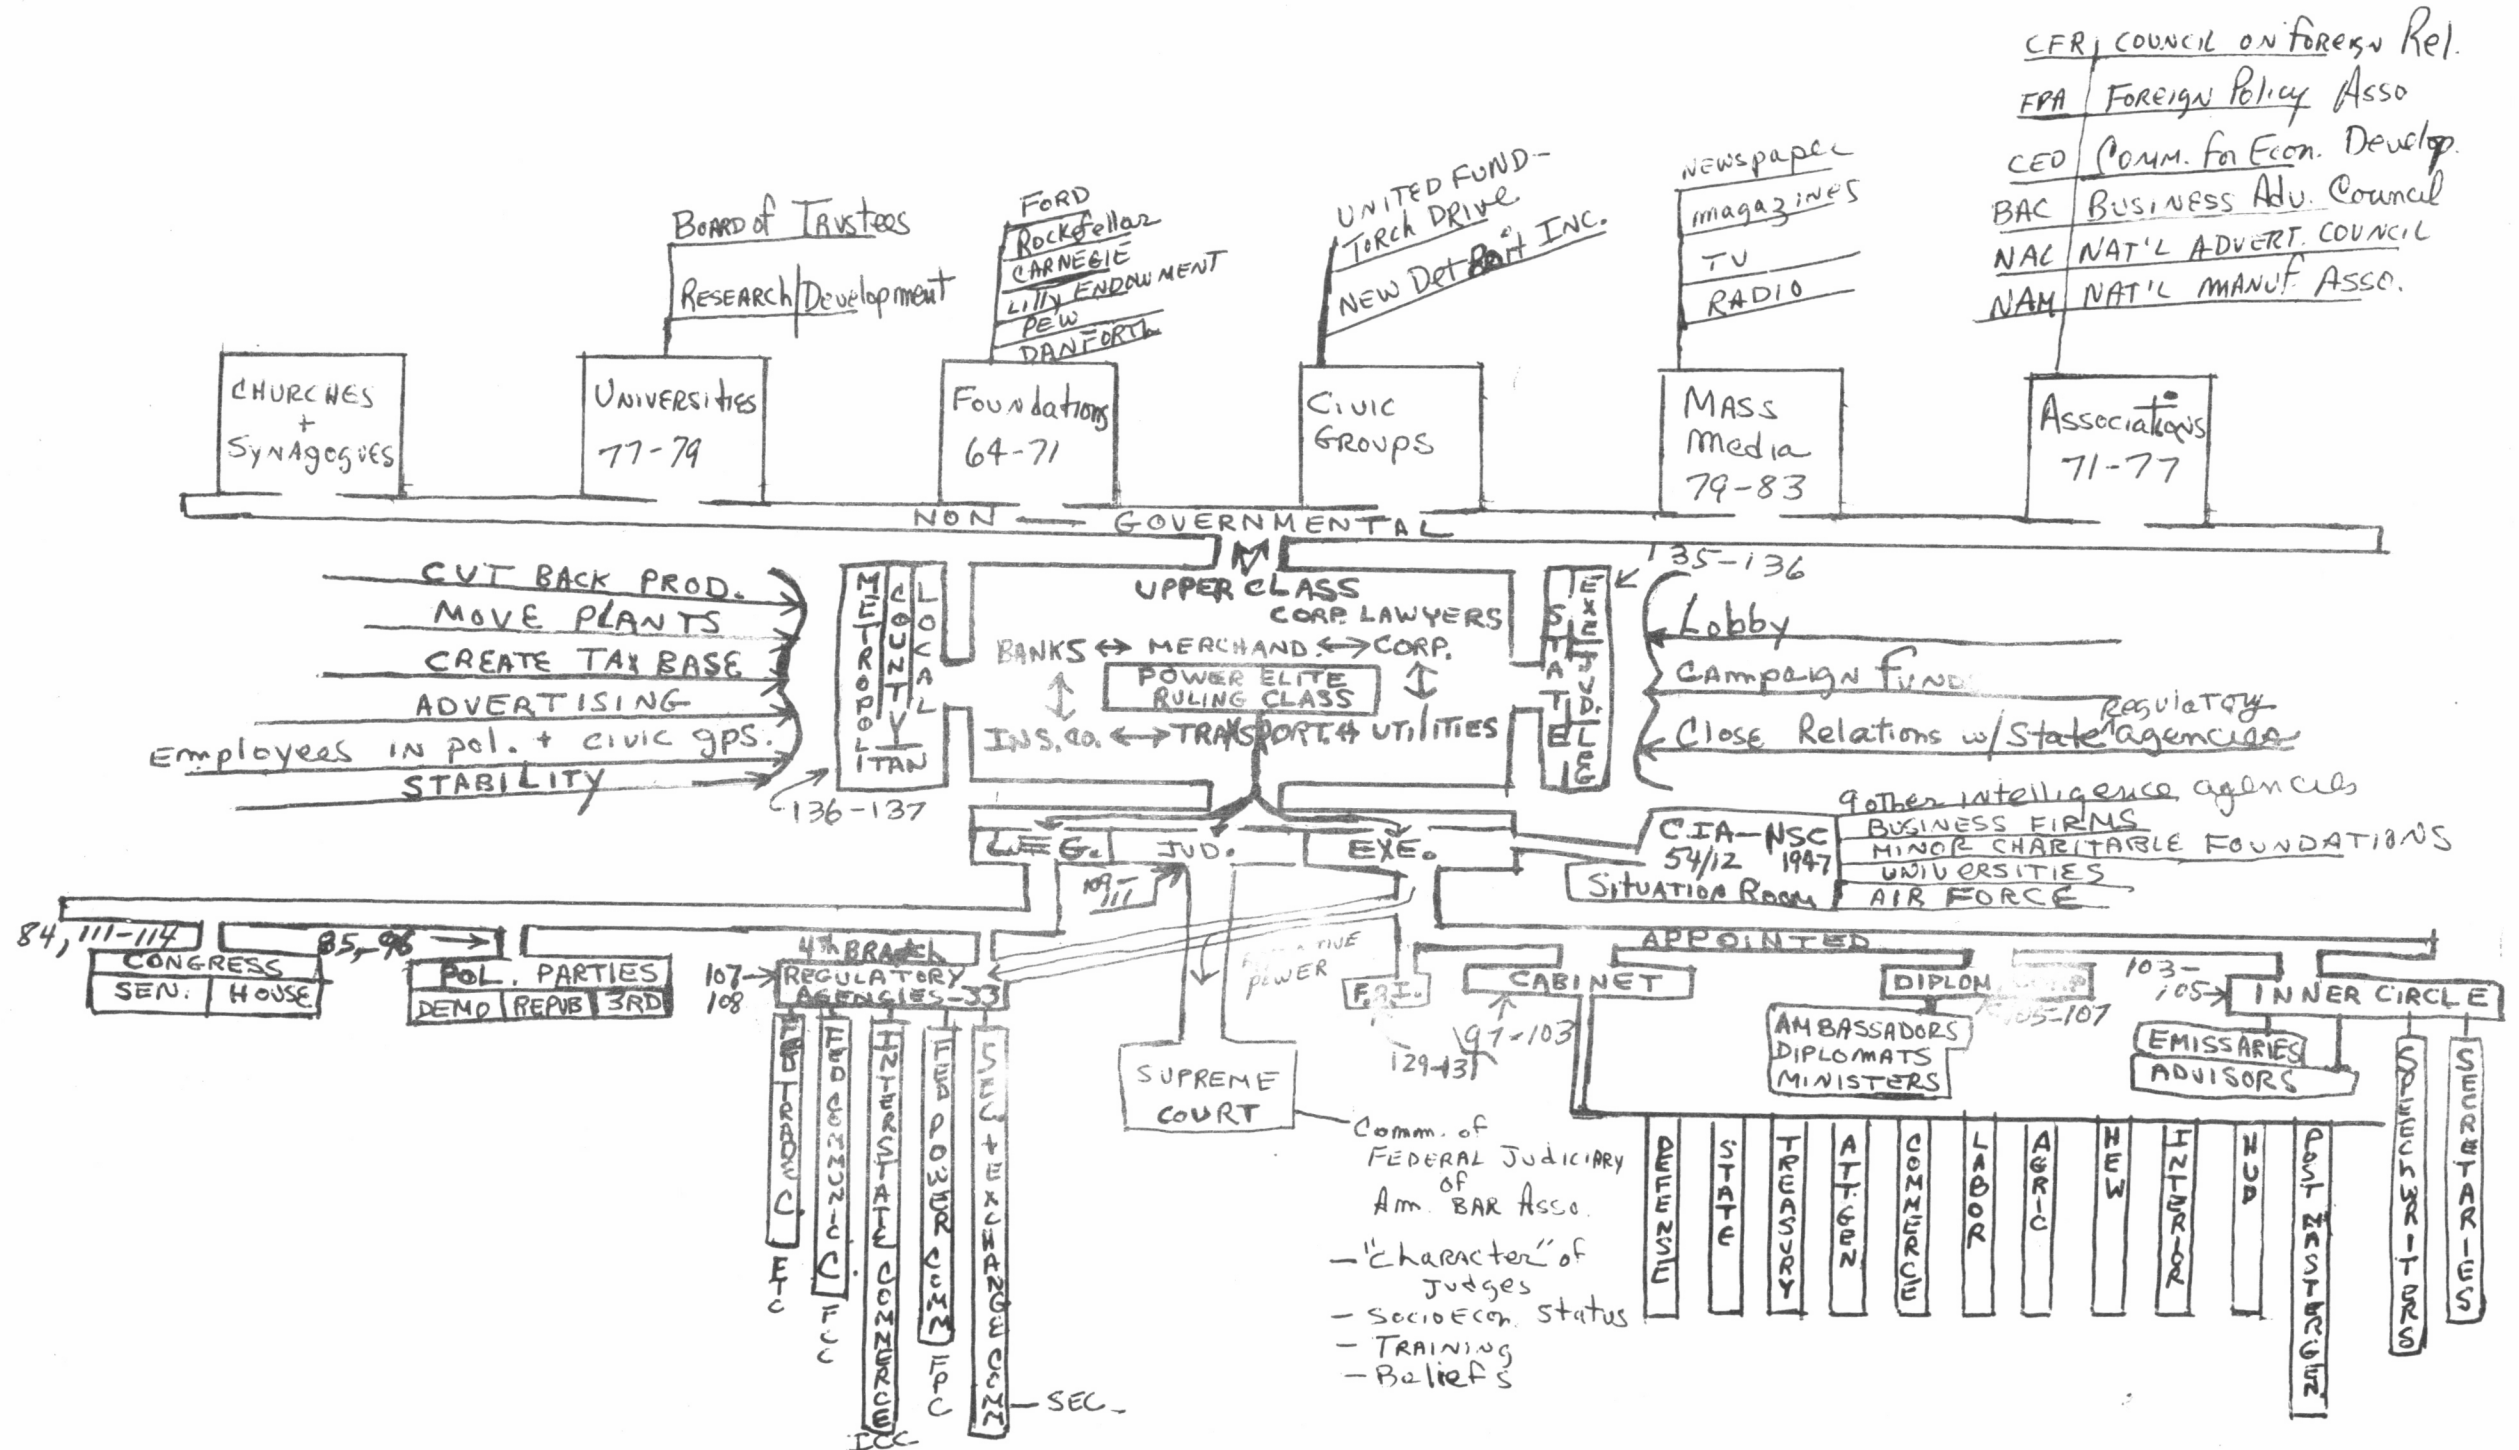 CFR COUNCIL ON FOREIGN Rel.
FPA FOREIGN Policy Asso
CED Comm. for Econ. Develop.
BAC BUSINESS Adv. Council
NAC NAT'L ADVERT. COUNCIL
NAM NAT'L MANUF. Asso.
NEWSpaper
magazines
TV
RADIO
UNITED FUND-
TORCH DRIVE
NEW Detroit INC.
FORD
Rockefellar
CARNEGIE
Lilly ENDOWMENT
PEW
DANFORTH
BOARD of Trustees
RESEARCH/Development
CHURCHES
+
SYNAgogUES
UNIVERSITIES
77-79
Foundations
64-71
CIVIC
GROUPS
MASS
Media
79-83
Associations
71-77
NON — GOVERNMENTAL
CUT BACK PROD.
MOVE PLANTS
CREATE TAX BASE
ADVERTISING
Employees in pol. + civic gps.
STABILITY
136-137
METROPOLITAN
COUNTY
LOCAL
UPPER CLASS
CORP. LAWYERS
BANKS ↔ MERCHAND. ↔ CORP.
POWER ELITE
RULING CLASS
INS. CO. ↔ TRANSPORT. ↔ UTILITIES
STATE
EXE. JUD. LEG
135-136
Lobby
Campaign
Close Relations w/ State Regulatory agencies
LEG. JUD. EXE.
109-111
CIA-NSC
54/12 1947
SITUATION ROOM
9 other intelligence agencies
BUSINESS FIRMS
MINOR CHARITABLE FOUNDATIONS
UNIVERSITIES
AIR FORCE
84, 111-114
CONGRESS
SEN. HOUSE
85,-96
POL. PARTIES
DEMO REPUB 3RD
4th BRANCH
107-
108
REGULATORY
AGENCIES-33
FED TRADE C.
FTC
FED COMMUNIC. C.
FCC
INTERSTATE COMMERCE
ICC
FED POWER COMM
FPC
SEC + EXCHANGE COMM
SEC-
POWER
SUPREME
COURT
Comm. of
FEDERAL JUDICIARY
of
Am. BAR Asso.
- "Character" of
Judges
- SocioEcon. Status
- TRAINING
- Beliefs
APPOINTED
F.B.I.
CABINET
97-103
DIPLOM
105-107
AMBASSADORS
DIPLOMATS
MINISTERS
103-
105
INNER CIRCLE
EMISSARIES
ADVISORS
SPEECHWRITERS
SECRETARIES
DEFENSE
STATE
TREASURY
ATT. GEN
COMMERCE
LABOR
AGRIC
HEW
INTERIOR
HUD
POST MASTER GEN